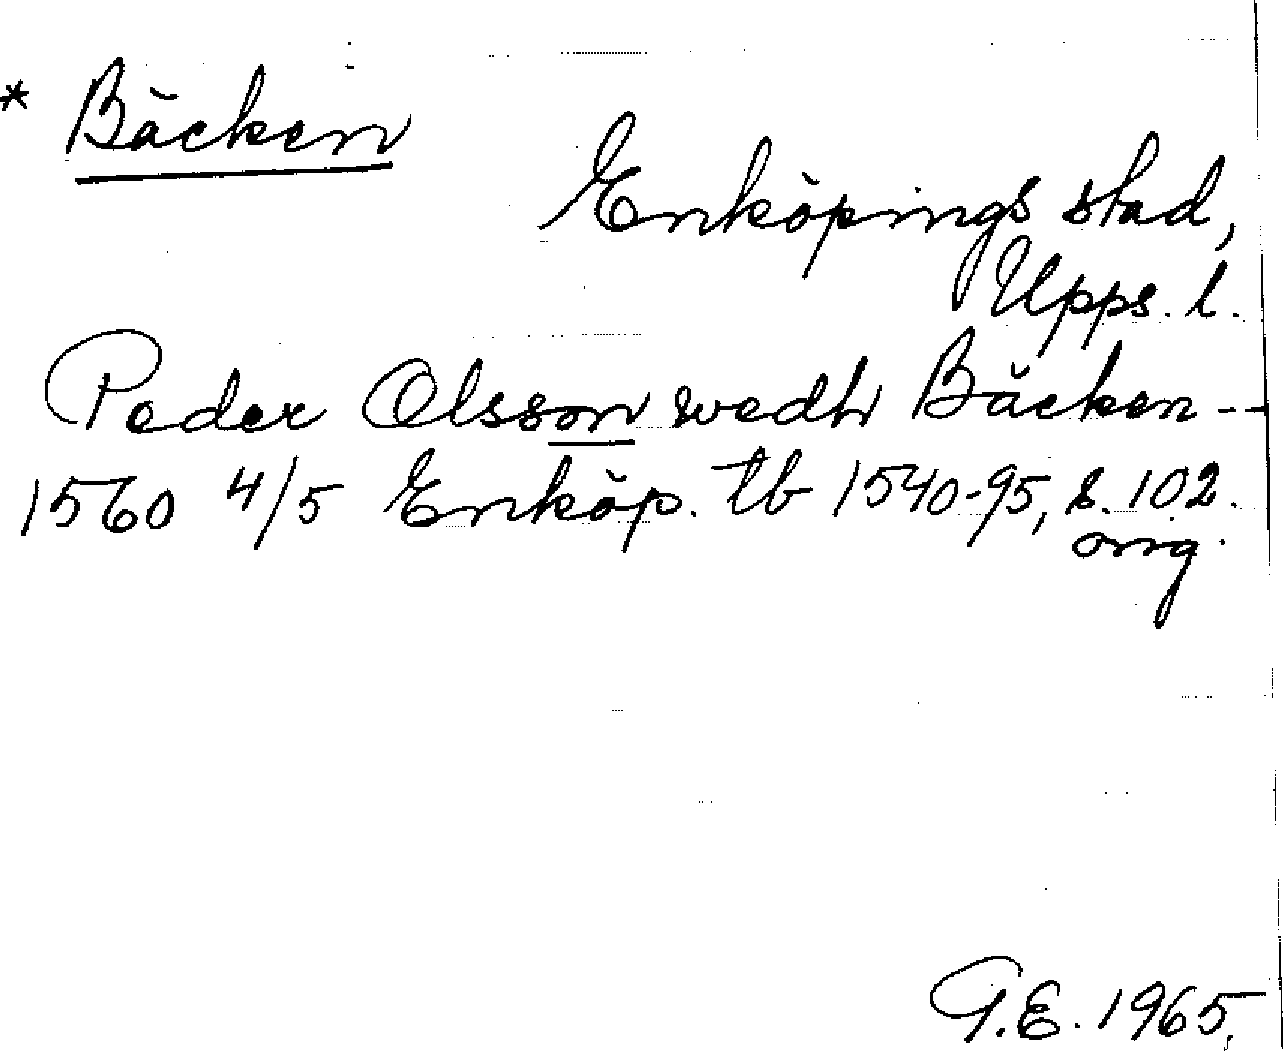 * Bäcken
Enköpings stad,
Upps. l.
Peder Olsson wedh Bäcken --
1560 4/5 Enköp. tb 1540-95, s. 102.
orig.
G.E. 1965.